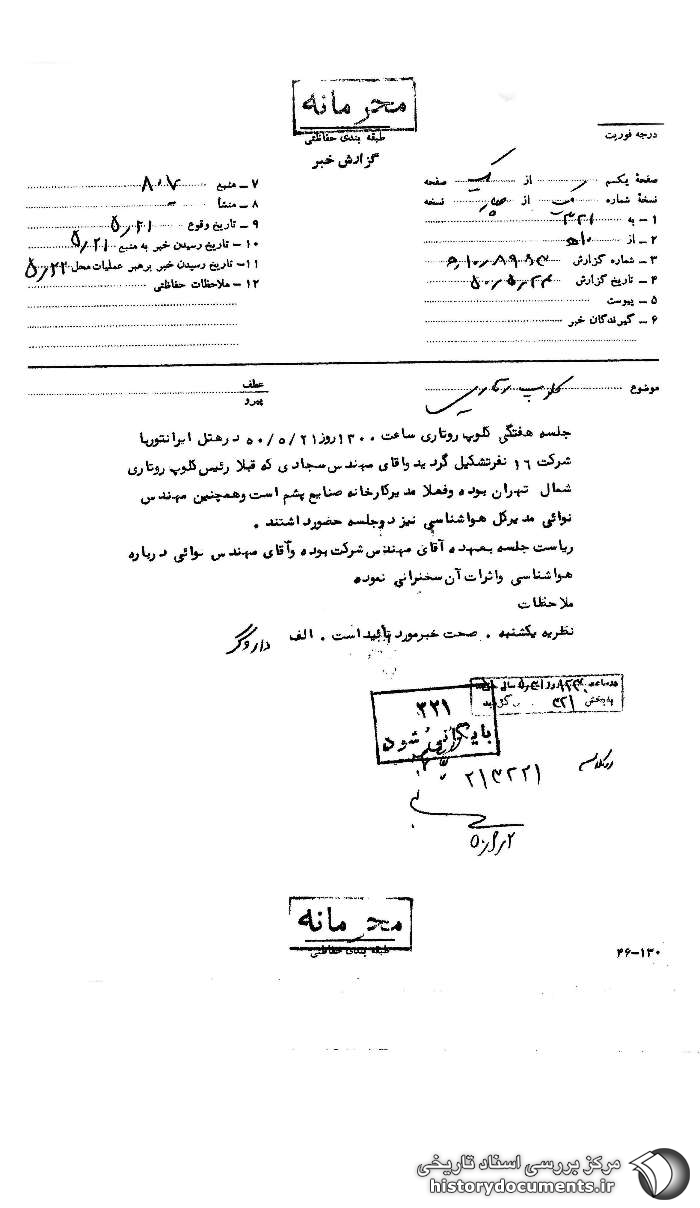 محرمانه
طبقه بندی حفاظتی
گزارش خبر
درجه فوریت
صفحهٔ یکم از یک صفحه
نسخهٔ شماره یک از چهار نسخه
۱ – به ۳۲۱
۲ – از ۵۱۰
۳ – شماره گزارش
۴ – تاریخ گزارش ۵۰٫۵٫۲۴
۵ – پیوست
۶ – گیرندگان خبر
۷ – منبع ۸۰۷
۸ – منشأ –
۹ – تاریخ وقوع ۵٫۲۱
۱۰ – تاریخ رسیدن خبر به منبع ۵٫۲۱
۱۱ – تاریخ رسیدن خبر برهبر عملیات محل ۵٫۲۲
۱۲ – ملاحظات حفاظتی
موضوع کلوپ روتاری
عطف
پیرو
جلسه هفتگی کلوپ روتاری ساعت ۱۳۰۰ روز ۵۰/۵/۲۱ در هتل ایرانتورپا
شرکت ۱۶ نفر تشکیل گردید و اقای مهندس سجادی که قبلا رئیس کلوپ روتاری
شمال تهران بوده و فعلا مدیر کارخانه صنایع پشم است وهمچنین مهندس
نوائی مدیر کل هواشناسی نیز درجلسه حضور داشتند .
ریاست جلسه بعهده آقای مهندس شرکت بوده وآقای مهندس نوائی درباره
هواشناسی واثرات آن سخنرانی نموده
ملاحظات
نظریه یکشنبه . صحت خبر مورد تأئید است . الف داروگر
به بخش ۳۲۱
۳۲۱
بایگانی شود
۲۱۳۲۲۱
۵۰٫۶٫۲
محرمانه
طبقه بندی حفاظتی
۴۶–۱۳۰
مرکز بررسی اسناد تاریخی
historydocuments.ir